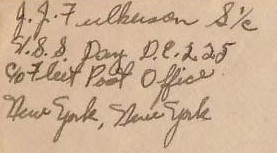 J. J. Fulkerson S 1/c
U.S.S. Day D.E. 225
c/o Fleet Post Office
New York, New York